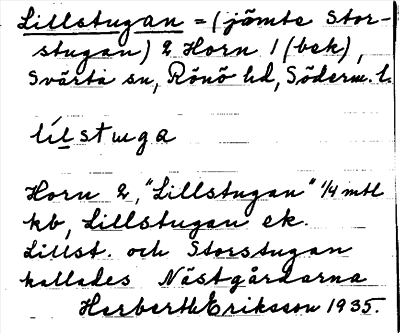 Lillstugan = (jämte Stor-
stugan) 2 Horn 1 (bek),
Svärta sn, Rönö hd, Söderm. l.
lil̄stuga
Horn 2, "Lillstugan" 1/4 mtl
kb, Lillstugan ek.
Lillst. och Storstugan
kallades Nästgårdarna
Herberth Eriksson 1935.